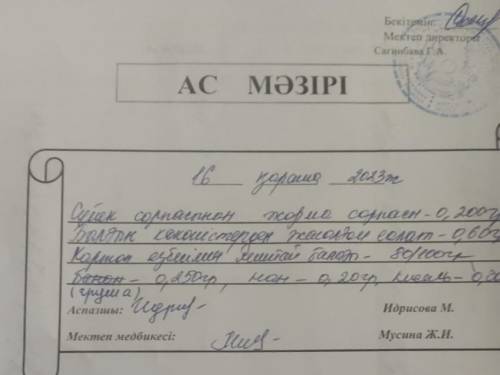 Бекітемін:
Мектеп директоры
Сагинбаева Г.А.
АС МӘЗІРІ
16 қараша 2023ж
Сүйек сорпасынан жарма сорпасы - 0,200гр
көкөністерден жасалған салат - 0,60гр
Картоп езбесімен балық - 80/100гр
Банан - 0,250гр, нан - 0,20гр, кисель - 0,20
(груша)
Аспазшы: Идрисова М.
Мектеп медбикесі: Мусина Ж.И.